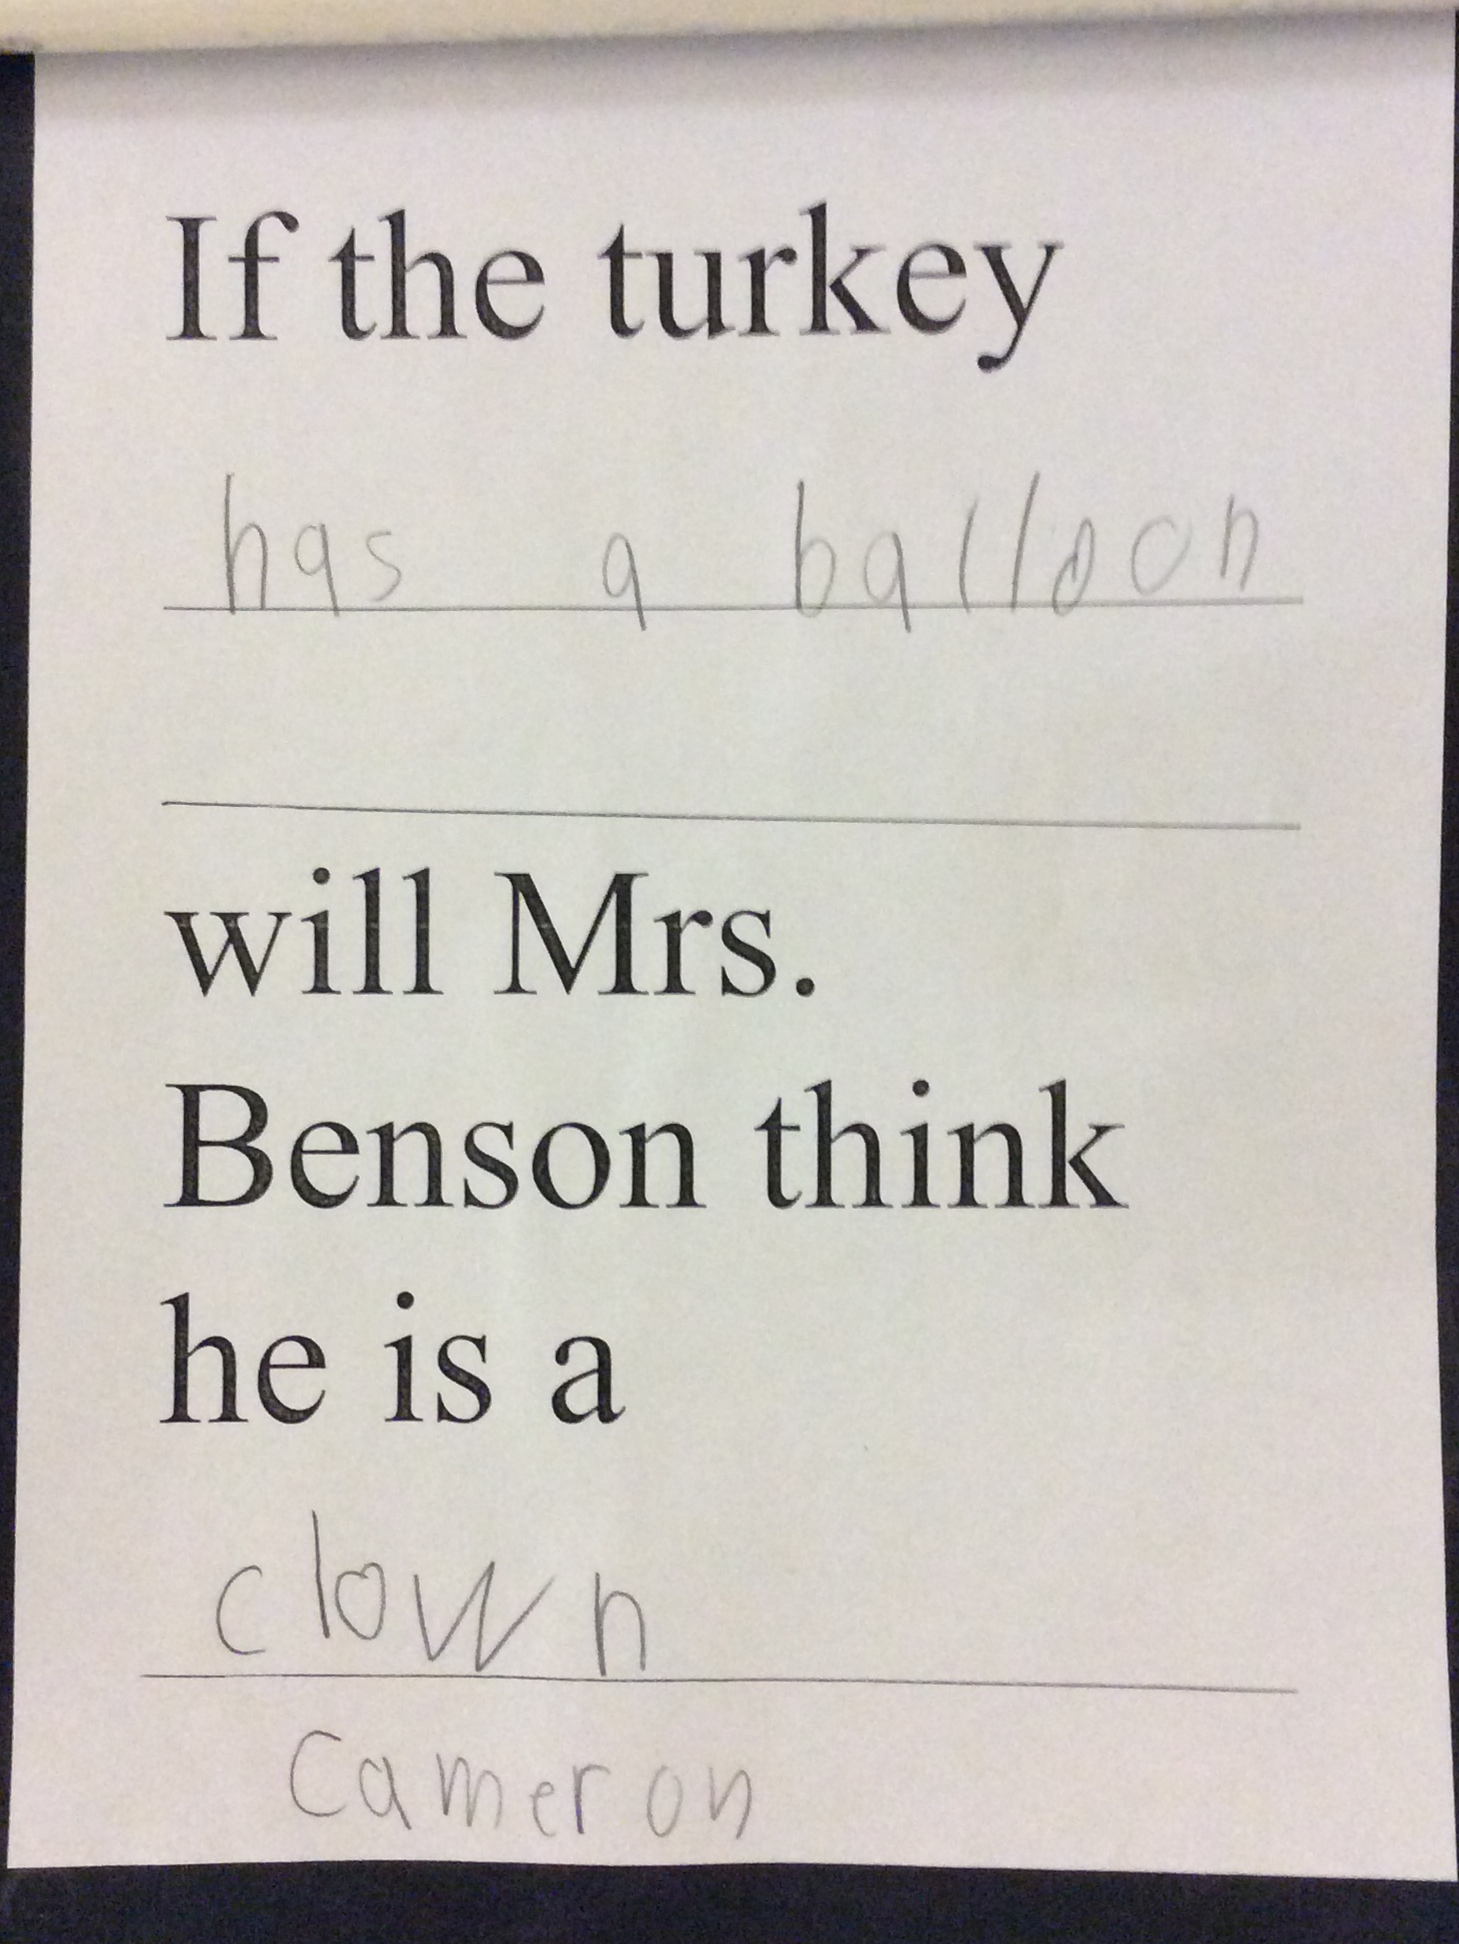 If the turkey
has a balloon
will Mrs.
Benson think
he is a
clown
Cameron